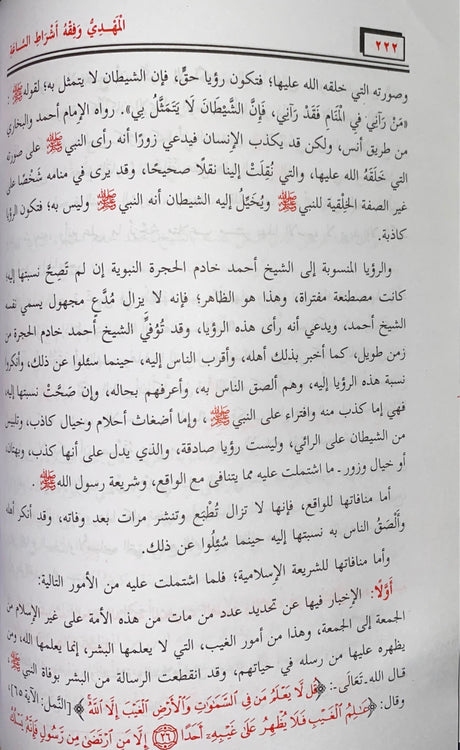 المَهْدِيُّ وَفِقْهُ أَشْرَاطِ السَّاعَةِ
٢٢٢
وصورته التي خلقه الله عليها؛ فتكون رؤيا حقٍّ، فإن الشيطان لا يتمثل به؛ لقوله ﷺ:
«مَنْ رَآنِي فِي الْمَنَامِ فَقَدْ رَآنِي، فَإِنَّ الشَّيْطَانَ لَا يَتَمَثَّلُ بِي». رواه الإمام أحمد والبخاري
من طريق أنس، ولكن قد يكذب الإنسان فيدعي زورًا أنه رأى النبي ﷺ على صورته
التي خَلَقَهُ الله عليها، والتي نُقِلَتْ إلينا نقلًا صحيحًا، وقد يرى في منامه شَخْصًا على
غير الصفة الخِلْقية للنبي ﷺ ويُخَيِّلُ إليه الشيطان أنه النبي ﷺ وليس به؛ فتكون الرؤيا
كاذبة.
والرؤيا المنسوبة إلى الشيخ أحمد خادم الحجرة النبوية إن لم تَصِحَّ نسبتها إليه،
كانت مصطنعة مفتراة، وهذا هو الظاهر؛ فإنه لا يزال مُدَّعٍ مجهول يسمي نفسه
الشيخ أحمد، ويدعي أنه رأى هذه الرؤيا، وقد تُوُفِّيَ الشيخ أحمد خادم الحجرة من
زمن طويل، كما أخبر بذلك أهله، وأقرب الناس إليه، حينما سئلوا عن ذلك، وأنكروا
نسبة هذه الرؤيا إليه، وهم ألصق الناس به، وأعرفهم بحاله، وإن صَحَّتْ نسبتها إليه،
فهي إما كذب منه وافتراء على النبي ﷺ، وإما أضغاث أحلام وخيال كاذب، وتلبيس
من الشيطان على الرائي، وليست رؤيا صادقة، والذي يدل على أنها كذب، وبهتان،
أو خيال وزور ـ ما اشتملت عليه مما يتنافى مع الواقع، وشريعة رسول الله ﷺ.
أما منافاتها للواقع، فإنها لا تزال تُطْبَع وتنشر مرات بعد وفاته، وقد أنكر أهله
وأَلْصَقُ الناس به نسبتها إليه حينما سُئِلُوا عن ذلك.
وأما منافاتها للشريعة الإسلامية؛ فلما اشتملت عليه من الأمور التالية:
أَوَّلًا: الإخبار فيها عن تحديد عدد من مات من هذه الأمة على غير الإسلام من
الجمعة إلى الجمعة، وهذا من أمور الغيب، التي لا يعلمها البشر، إنما يعلمها الله، ومن
يظهره عليها من رسله في حياتهم، وقد انقطعت الرسالة من البشر بوفاة النبي ﷺ،
قال الله ـ تَعَالَى ـ: ﴿قُل لَّا يَعْلَمُ مَن فِي السَّمَٰوَٰتِ وَالْأَرْضِ الْغَيْبَ إِلَّا اللَّهُ﴾ [النمل: الآية ٦٥]،
وقال: ﴿عَٰلِمُ الْغَيْبِ فَلَا يُظْهِرُ عَلَىٰ غَيْبِهِۦٓ أَحَدًا ۝٢٦ إِلَّا مَنِ ارْتَضَىٰ مِن رَّسُولٍ فَإِنَّهُۥ يَسْلُكُ